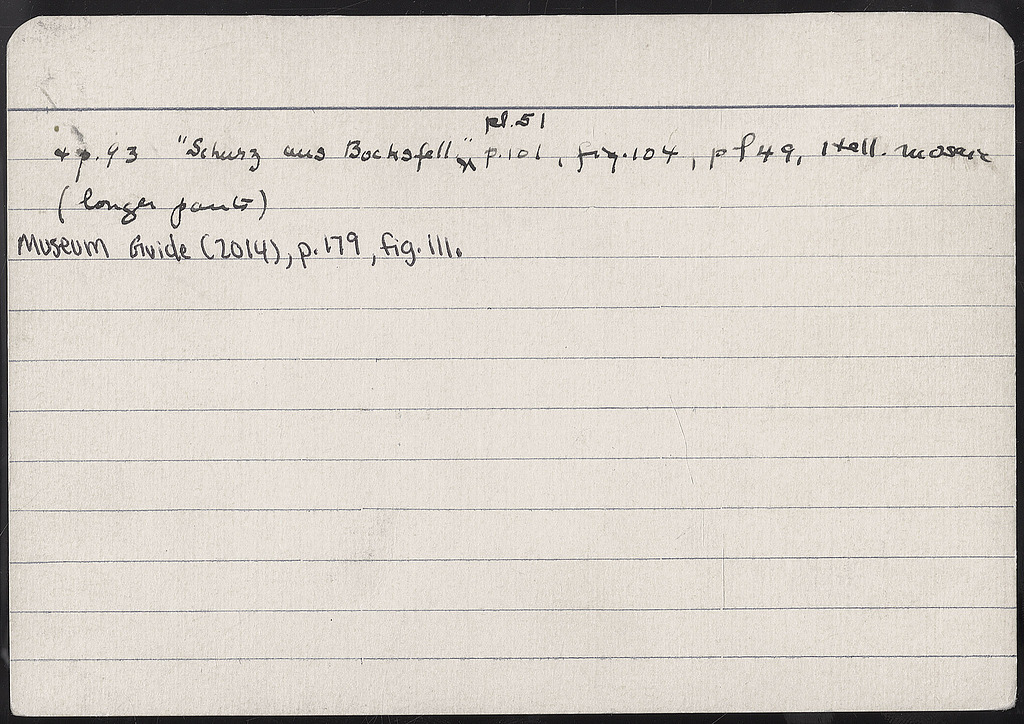 pl. 51
+ p. 93 "Schurz aus Bocksfell", p. 101, fig. 104, pl 49, Hell. mosaic
(longer pants)
Museum Guide (2014), p. 179, fig. 111.